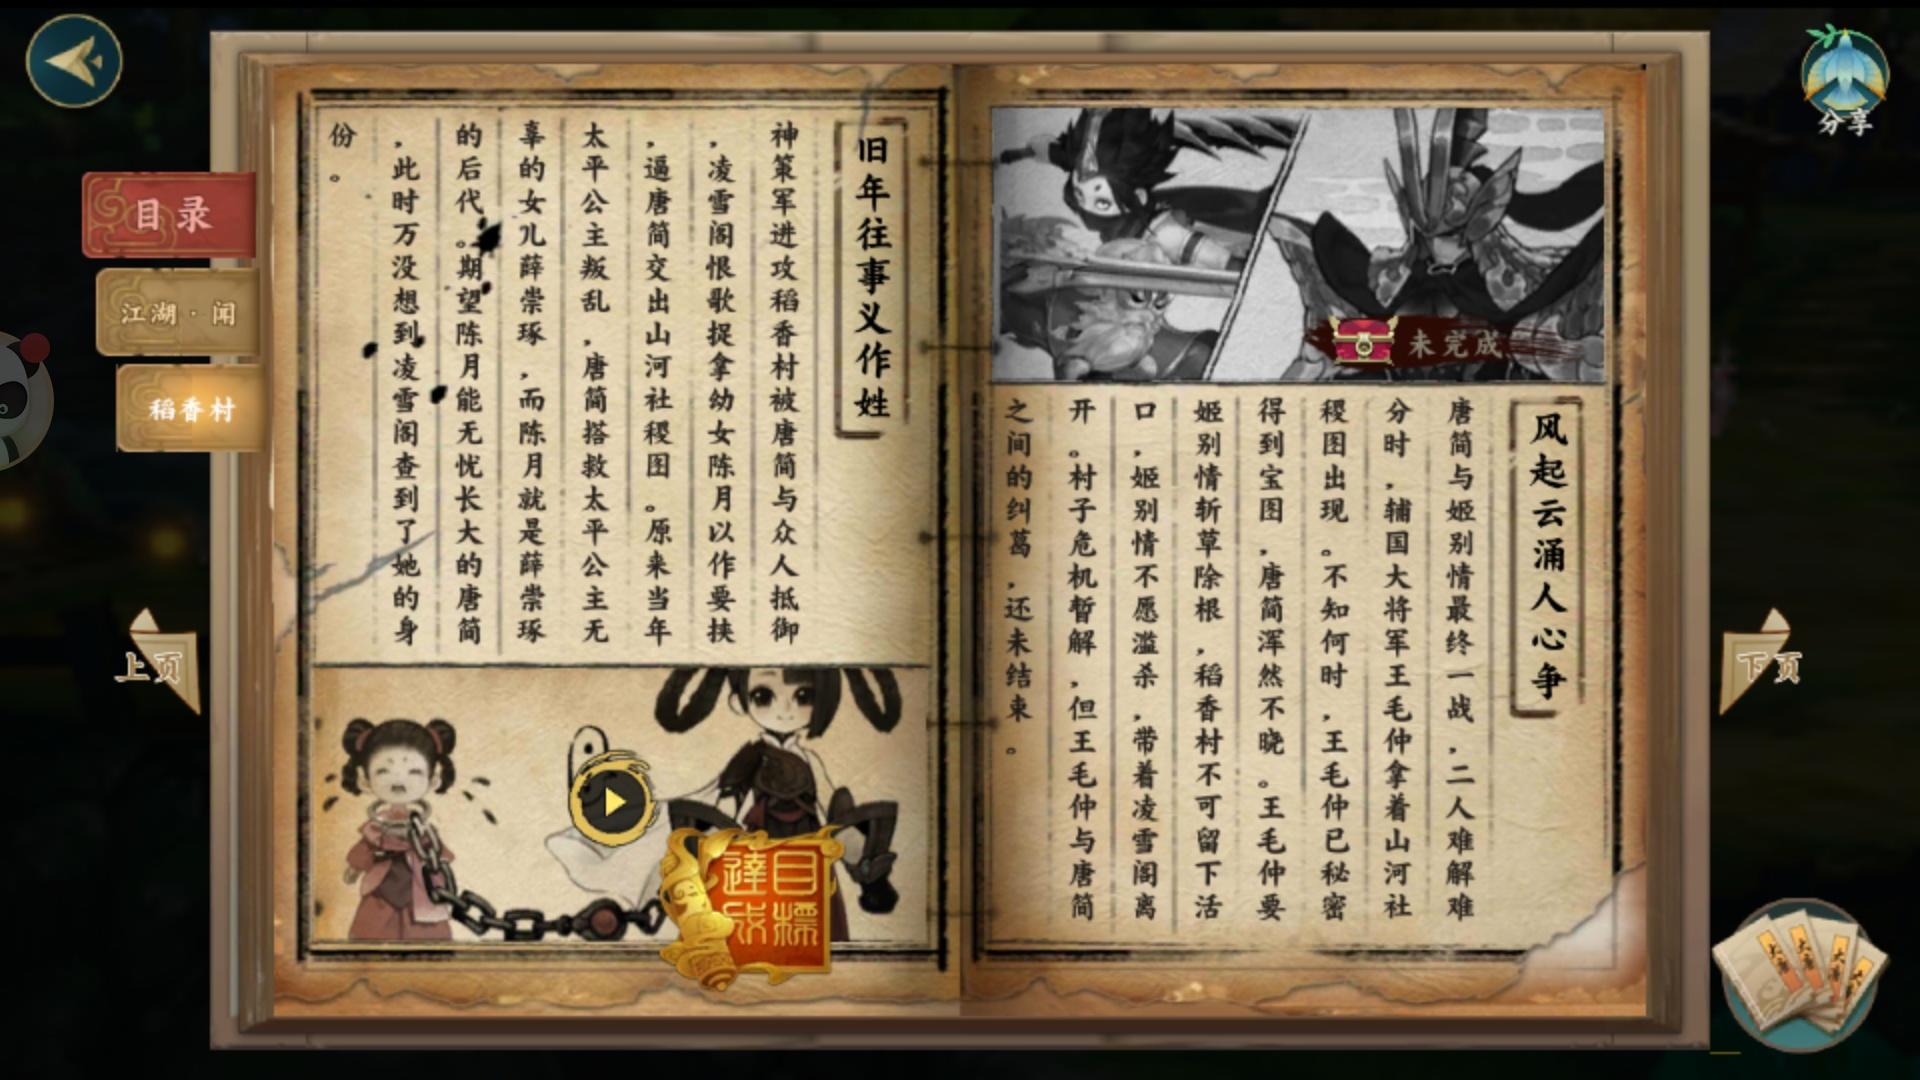 分享
目录
江湖·闻
稻香村
上页
下页
旧年往事义作姓
神策军进攻稻香村被唐简与众人抵御
，凌雪阁恨歌捉拿幼女陈月以作要挟
，逼唐简交出山河社稷图。原来当年
太平公主叛乱，唐简搭救太平公主无
辜的女儿薛崇琢，而陈月就是薛崇琢
的后代。期望陈月能无忧长大的唐简
，此时万没想到凌雪阁查到了她的身
份。
目標
達成
未完成
风起云涌人心争
唐简与姬别情最终一战，二人难解难
分时，辅国大将军王毛仲拿着山河社
稷图出现。不知何时，王毛仲已秘密
得到宝图，唐简浑然不晓。王毛仲要
姬别情斩草除根，稻香村不可留下活
口，姬别情不愿滥杀，带着凌雪阁离
开。村子危机暂解，但王毛仲与唐简
之间的纠葛，还未结束。